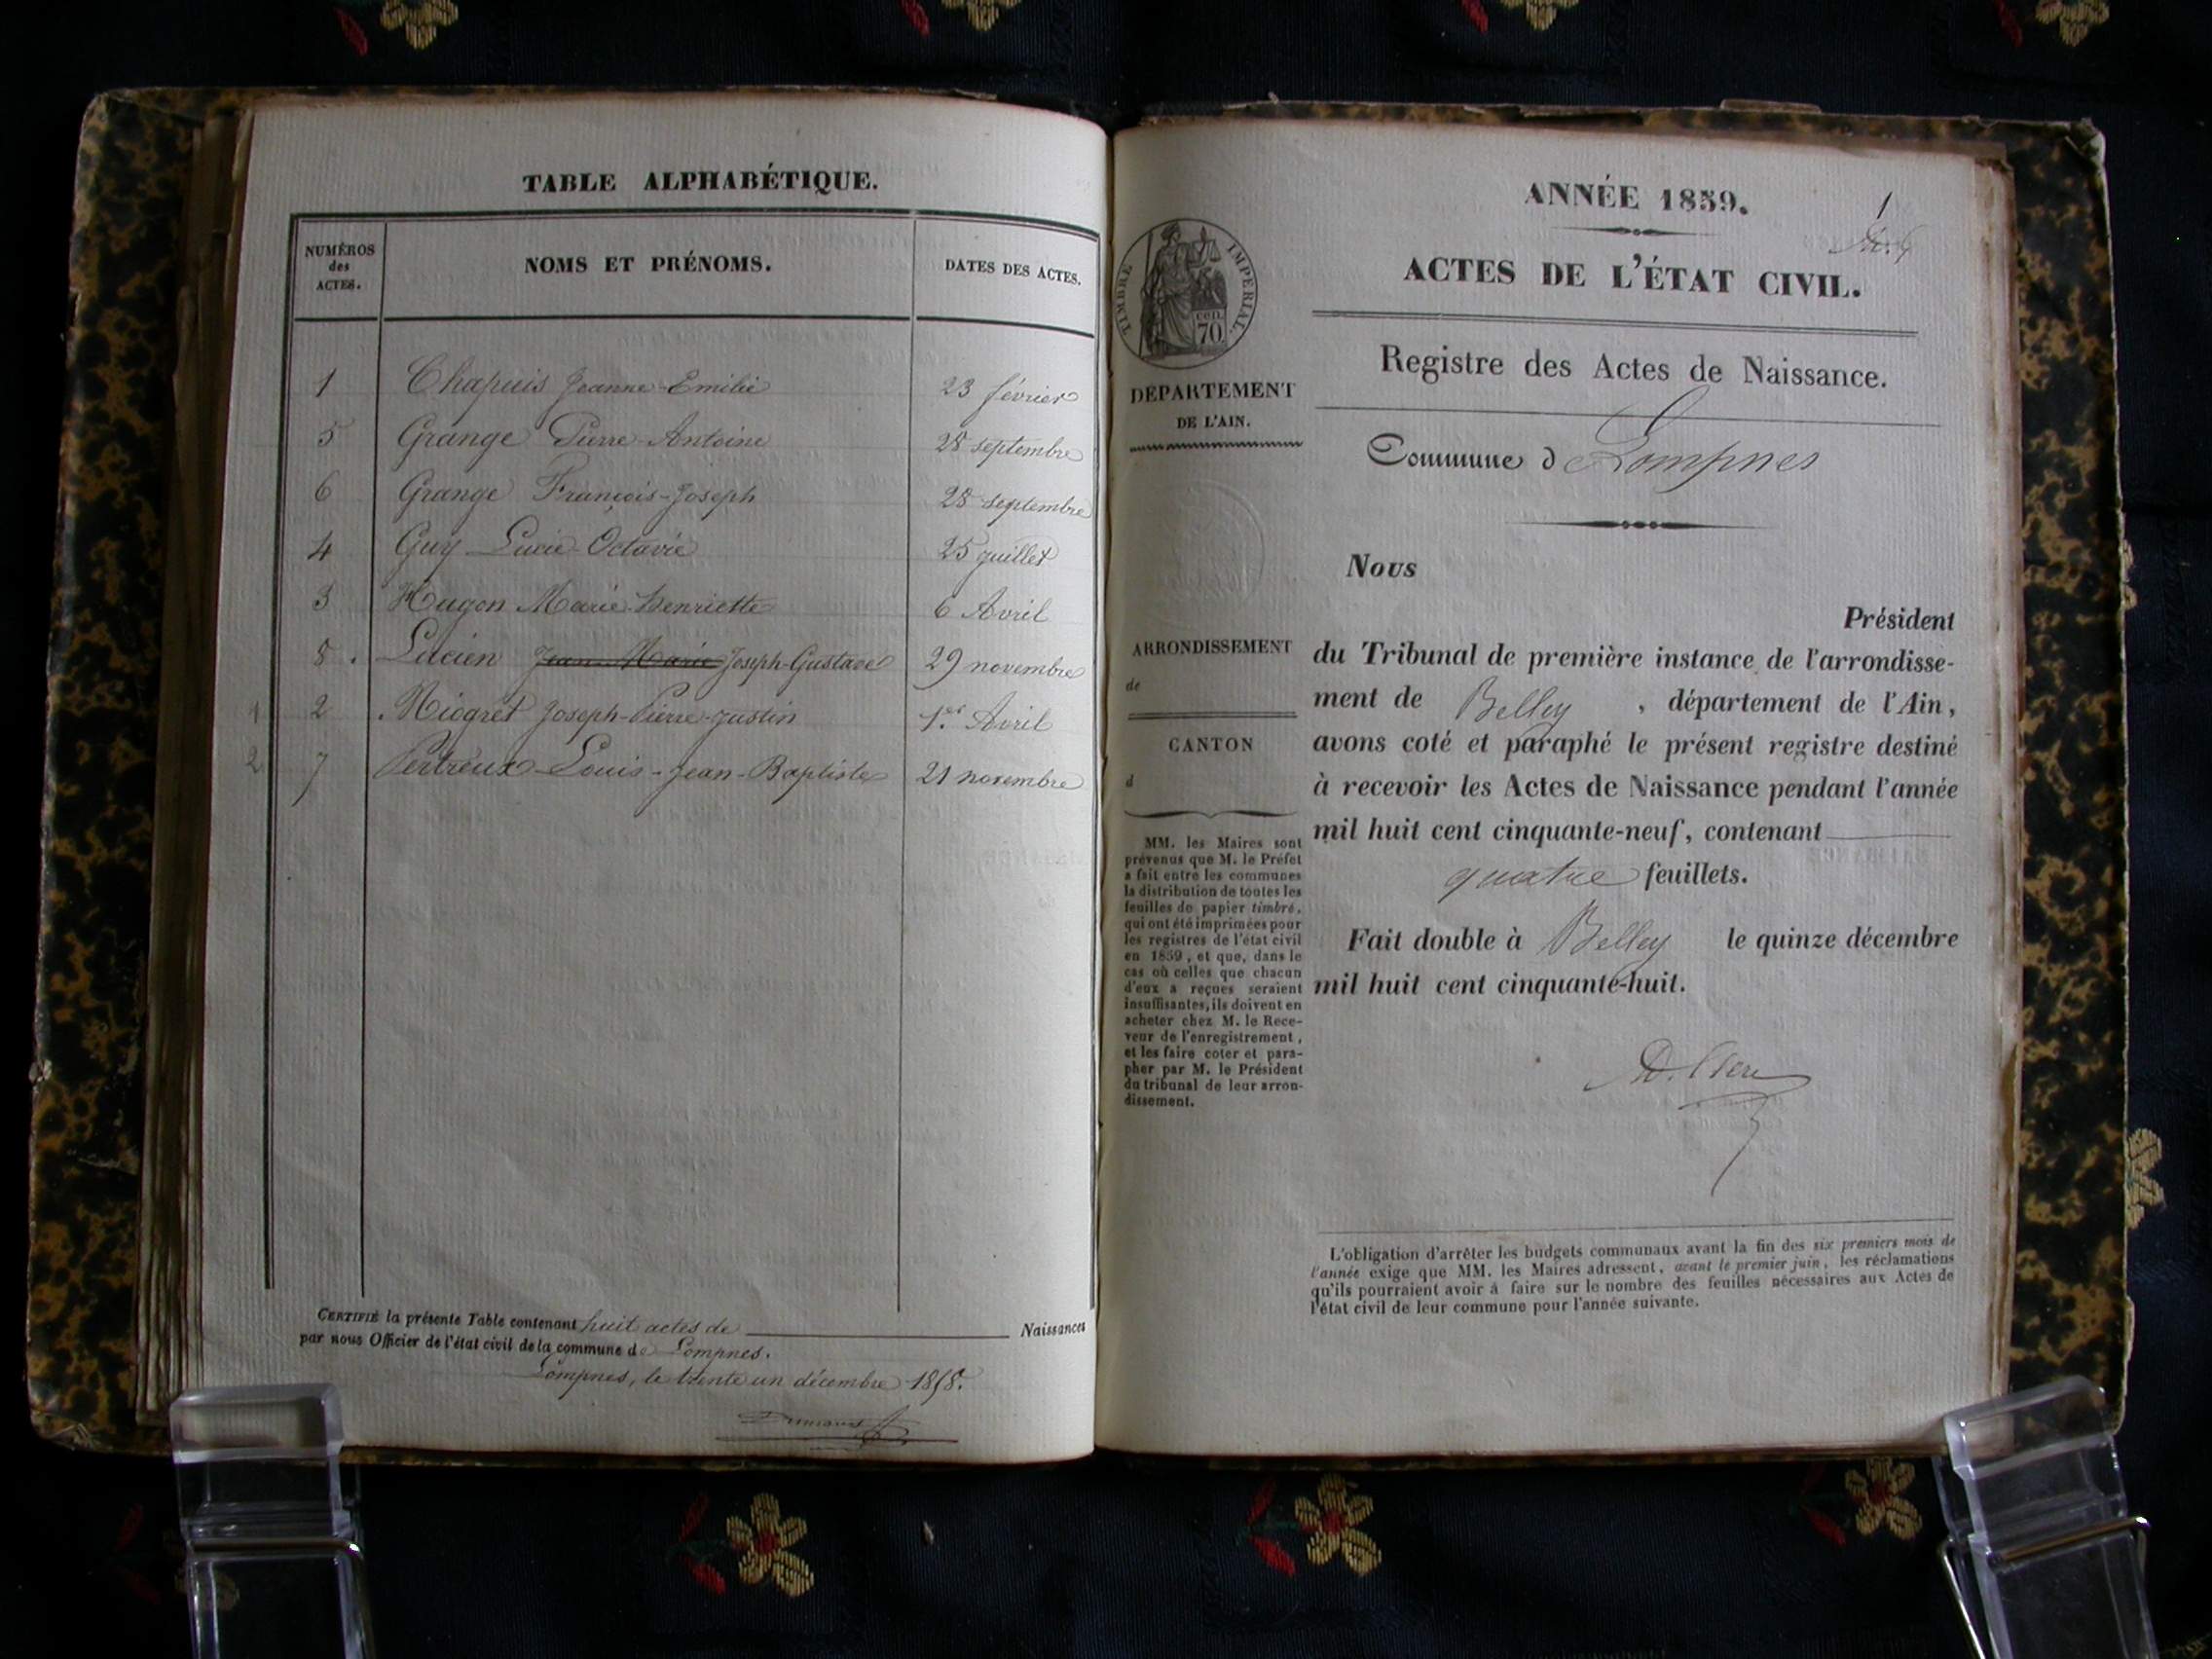 TABLE ALPHABÉTIQUE.
NUMÉROS des ACTES. NOMS ET PRÉNOMS. DATES DES ACTES.
1 Chapuis Jeanne-Emilie 23 février
5 Grange Pierre-Antoine 28 septembre
6 Grange François-Joseph 28 septembre
4 Guy Lucie-Octavie 25 juillet
3 Hugon Marie-Henriette 6 Avril
8. Lucien Jean-Marie Joseph-Gustave 29 novembre
1 2 Niogret Joseph-Pierre-Justin 1.er Avril
2 7 Pertreux Louis-Jean-Baptiste 21 novembre
CERTIFIÉ la présente Table contenant huit actes de Naissances
par nous Officier de l'état civil de la commune de Lompnes.
Lompnes, le trente un décembre 1858.
1
ANNÉE 1859.
ACTES DE L'ÉTAT CIVIL.
TIMBRE IMPERIAL.
cen.
70.
Registre des Actes de Naissance.
DÉPARTEMENT
DE L'AIN.
Commune de Lompnes
Nous
Président
ARRONDISSEMENT
de
CANTON
d
du Tribunal de première instance de l'arrondisse-
ment de Belley, département de l'Ain,
avons coté et paraphé le présent registre destiné
à recevoir les Actes de Naissance pendant l'année
mil huit cent cinquante-neuf, contenant
quatre feuillets.
Fait double à Belley le quinze décembre
mil huit cent cinquante-huit.
MM. les Maires sont
prévenus que M. le Préfet
a fait entre les communes
la distribution de toutes les
feuilles de papier timbré,
qui ont été imprimées pour
les registres de l'état civil
en 1859, et que, dans le
cas où celles que chacun
d'eux a reçues seraient
insuffisantes, ils doivent en
acheter chez M. le Rece-
veur de l'enregistrement,
et les faire coter et para-
pher par M. le Président
du tribunal de leur arron-
dissement.
L'obligation d'arrêter les budgets communaux avant la fin des six premiers mois de
l'année exige que MM. les Maires adressent, avant le premier juin, les réclamations
qu'ils pourraient avoir à faire sur le nombre des feuilles nécessaires aux Actes de
l'état civil de leur commune pour l'année suivante.